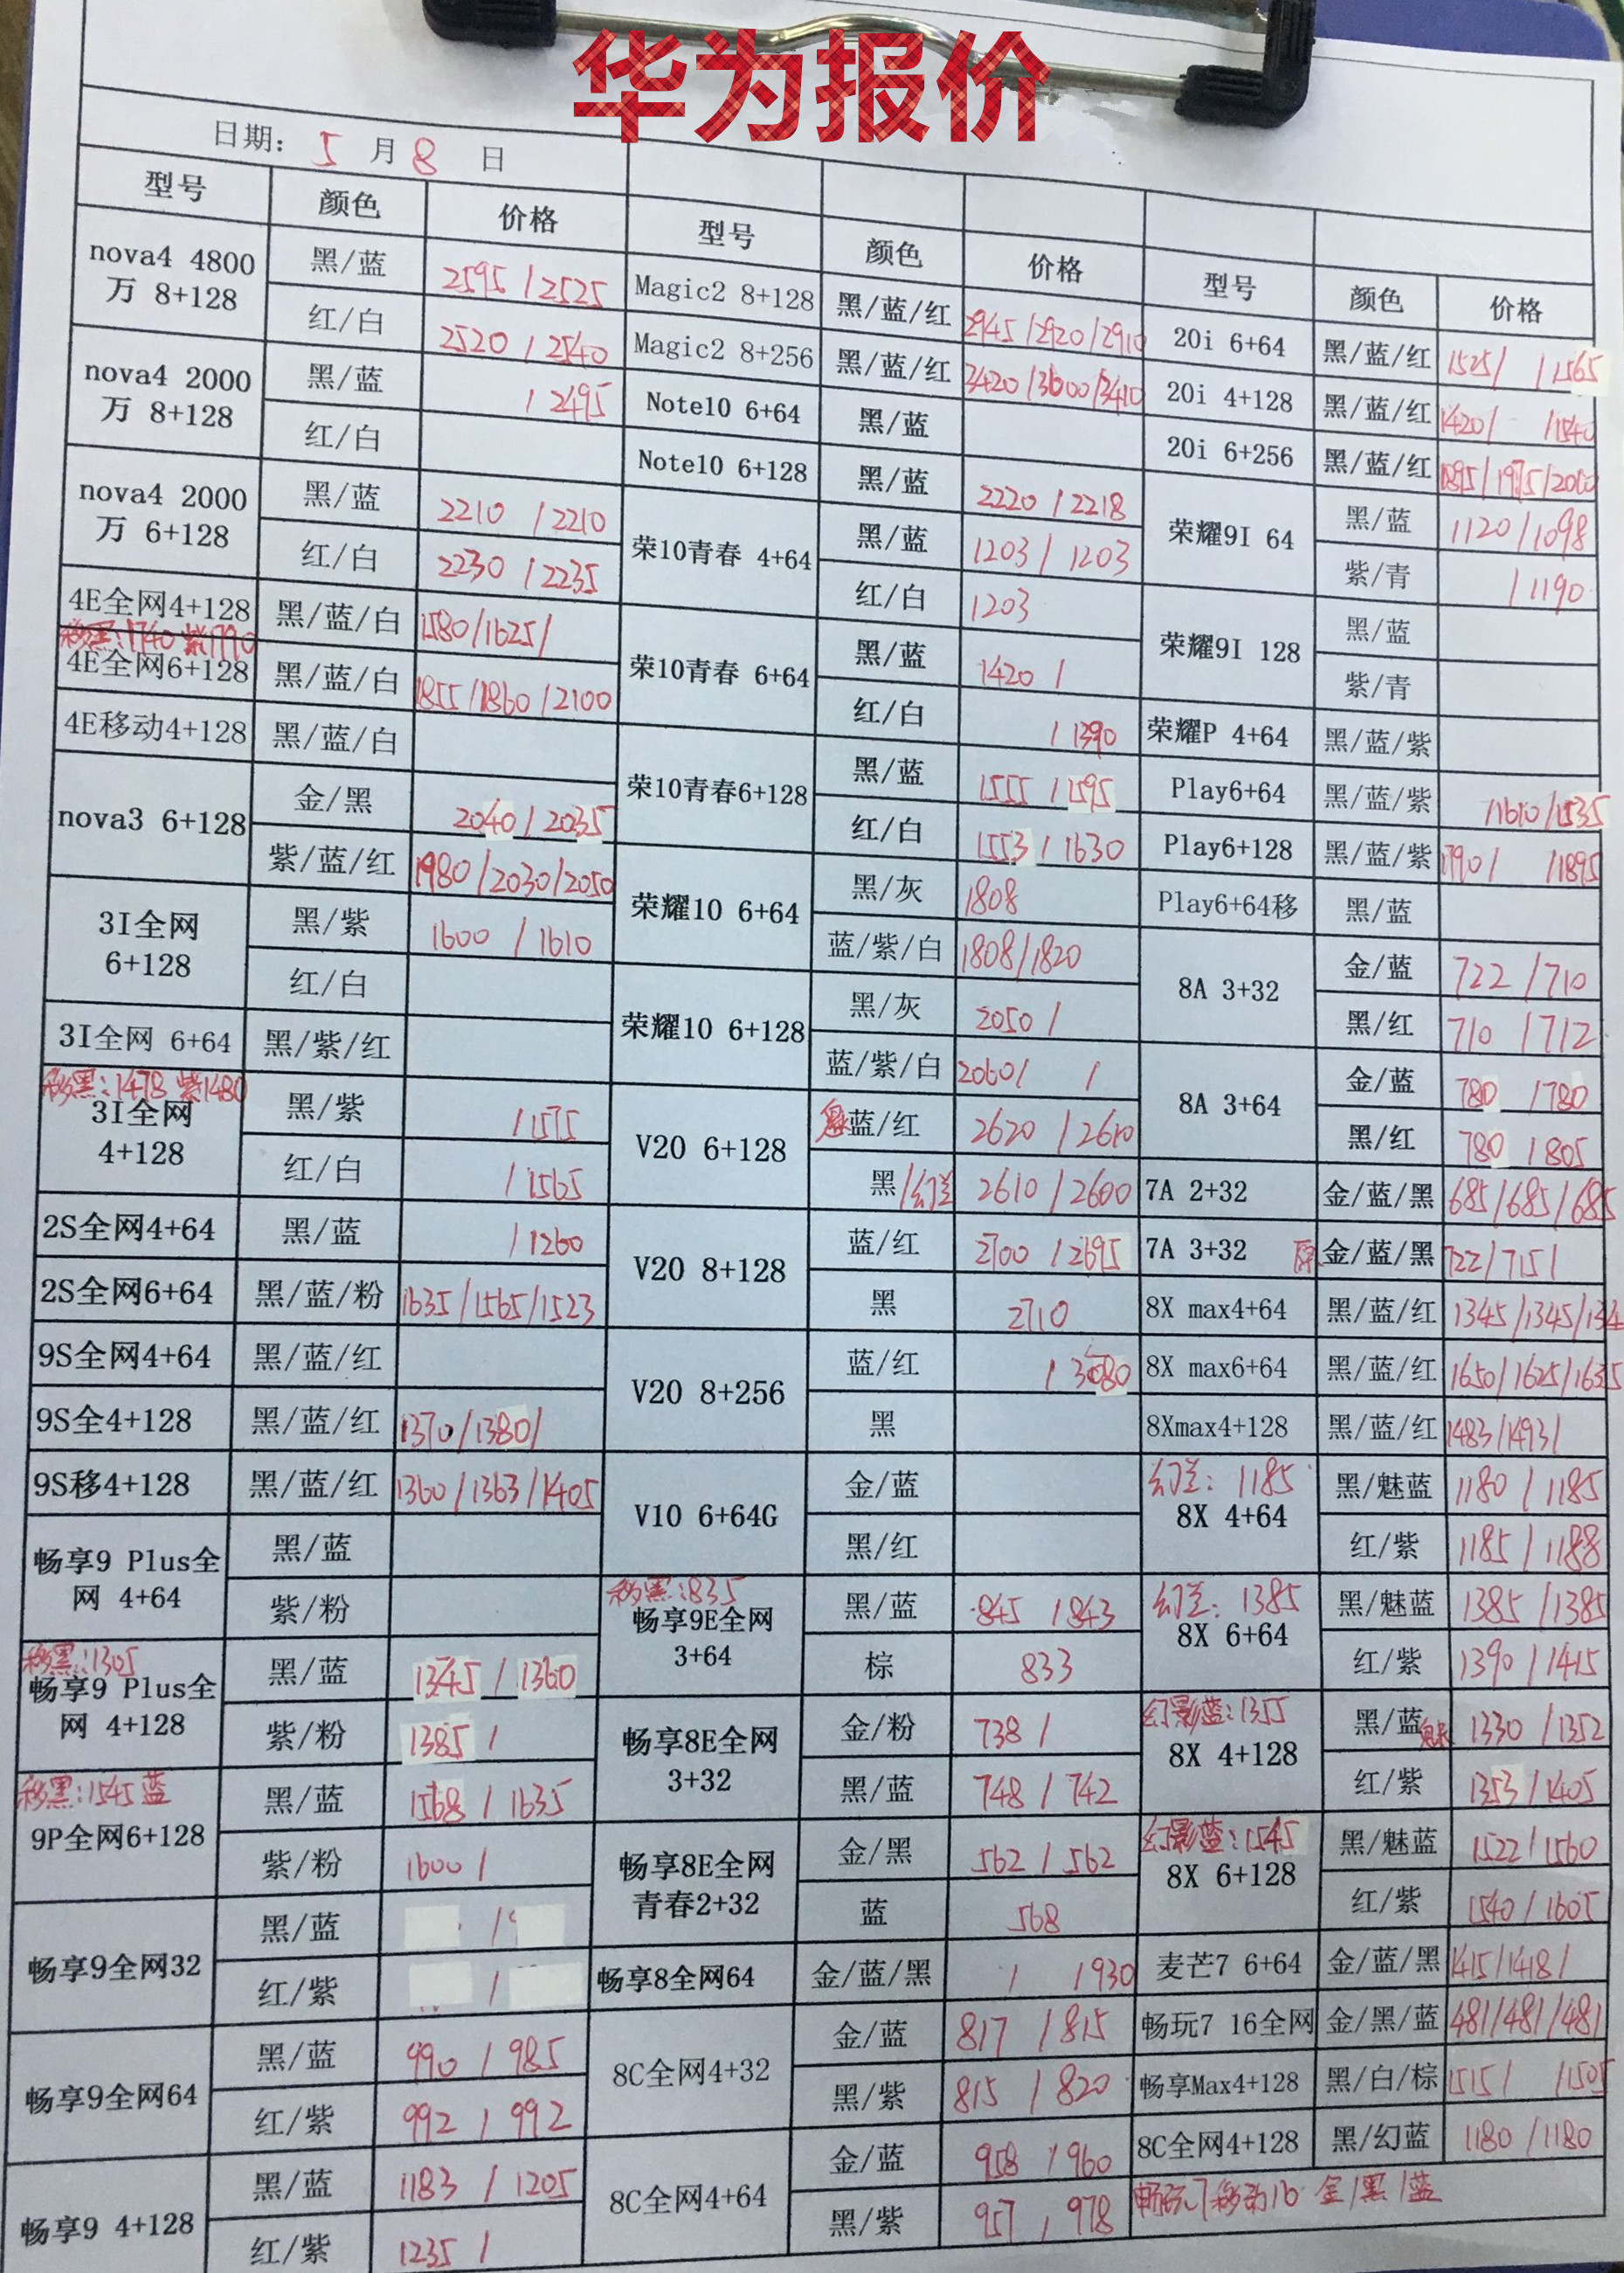 华为报价
日期: 5 月 8 日
型号 颜色 价格
nova4 4800万 8+128 黑/蓝 2595 / 2525
红/白 2520 / 2540
nova4 2000万 8+128 黑/蓝 / 2495
红/白
nova4 2000万 6+128 黑/蓝 2210 / 2210
红/白 2230 / 2235
4E全网4+128 黑/蓝/白 1580/1625/
移黑:1740 紫1790
4E全网6+128 黑/蓝/白 1855/1860/2100
4E移动4+128 黑/蓝/白
nova3 6+128 金/黑 2040 / 2035
紫/蓝/红 1980/2030/2050
3I全网 6+128 黑/紫 1600 / 1610
红/白
3I全网 6+64 黑/紫/红
移黑:1478 紫1480
3I全网 4+128 黑/紫 / 1575
红/白 / 1565
2S全网4+64 黑/蓝 / 1260
2S全网6+64 黑/蓝/粉 1635/1565/1523
9S全网4+64 黑/蓝/红
9S全4+128 黑/蓝/红 1370/1380/
9S移4+128 黑/蓝/红 1360/1363/1405
畅享9 Plus全网 4+64 黑/蓝
紫/粉
移黑:1305
畅享9 Plus全网 4+128 黑/蓝 1345 / 1360
紫/粉 1385 /
移黑:1545 蓝
9P全网6+128 黑/蓝 1568 / 1635
紫/粉 1600 /
畅享9全网32 黑/蓝 /
红/紫 /
畅享9全网64 黑/蓝 990 / 985
红/紫 992 / 992
畅享9 4+128 黑/蓝 1183 / 1205
红/紫 1235 /
型号 颜色 价格
Magic2 8+128 黑/蓝/红 2945/2920/2910
Magic2 8+256 黑/蓝/红 3420/3600/3410
Note10 6+64 黑/蓝
Note10 6+128 黑/蓝 2220 / 2218
荣10青春 4+64 黑/蓝 1203 / 1203
红/白 1203
荣10青春 6+64 黑/蓝 1420 /
红/白 / 1390
荣10青春6+128 黑/蓝 1555 / 1595
红/白 1553 / 1630
荣耀10 6+64 黑/灰 1808
蓝/紫/白 1808/1820
荣耀10 6+128 黑/灰 2050 /
蓝/紫/白 2060/ /
V20 6+128 魅蓝/红 2620 / 2610
黑/幻兰 2610 / 2600
V20 8+128 蓝/红 2700 / 2695
黑 2710
V20 8+256 蓝/红 / 3080
黑
V10 6+64G 金/蓝
黑/红
移黑:835
畅享9E全网 3+64 黑/蓝 845 / 843
棕 833
畅享8E全网 3+32 金/粉 738 /
黑/蓝 748 / 742
畅享8E全网青春2+32 金/黑 562 / 562
蓝 568
畅享8全网64 金/蓝/黑 / / 930
8C全网4+32 金/蓝 817 / 815
黑/紫 815 / 820
8C全网4+64 金/蓝 958 / 960
黑/紫 957 / 978
型号 颜色 价格
20i 6+64 黑/蓝/红 1525/ / 1565
20i 4+128 黑/蓝/红 1420/ /1540
20i 6+256 黑/蓝/红 1895/1975/2000
荣耀9I 64 黑/蓝 1120/1098
紫/青 / 1190
荣耀9I 128 黑/蓝
紫/青
荣耀P 4+64 黑/蓝/紫
Play6+64 黑/蓝/紫 /1610/1535
Play6+128 黑/蓝/紫 1790/ /1895
Play6+64移 黑/蓝
8A 3+32 金/蓝 722 / 710
黑/红 710 / 712
8A 3+64 金/蓝 780 / 780
黑/红 780 / 805
7A 2+32 金/蓝/黑 685/685/685
7A 3+32 金/蓝/黑 722/715/
8X max4+64 黑/蓝/红 1345/1345/134
8X max6+64 黑/蓝/红 1650/1625/1635
8Xmax4+128 黑/蓝/红 1483/1493/
幻兰: 1185
8X 4+64 黑/魅蓝 1180 / 1185
红/紫 1185 / 1188
幻兰: 1385
8X 6+64 黑/魅蓝 1385 / 1385
红/紫 1390 / 1415
幻影蓝:1355
8X 4+128 黑/蓝魅 1330 / 1352
红/紫 1353 / 1405
幻影蓝:1545
8X 6+128 黑/魅蓝 1522/1560
红/紫 1540/1605
麦芒7 6+64 金/蓝/黑 1415/1418/
畅玩7 16全网 金/黑/蓝 481/481/481
畅享Max4+128 黑/白/棕 1515/ /1505
8C全网4+128 黑/幻蓝 1180 / 1180
畅玩7移动16 金/黑/蓝